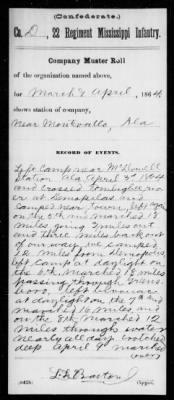 (Confederate.)
Co. D, 22 Regiment Mississippi Infantry.
Company Muster Roll
of the organization named above,
for March & April, 1864
shows station of company,
Near Montevallo, Ala
RECORD OF EVENTS.
Left Camp near McDowell
Station, Ala April 3rd 1864
and crossed Tombigbee riv
er at Demopolis and
Camped near Town, left
on the 5th and marched 18
miles going 3 miles out
and three miles back out
of our way, we camped
12 miles from Demopolis
left Camp at daylight on
the 6th marched 18 miles
passing through Greens
boro, left bivouac
at daylight on the 7th and
marched 16 miles and
on the 8th marched 12
miles through water
nearly all day
deep April 9th marched
over